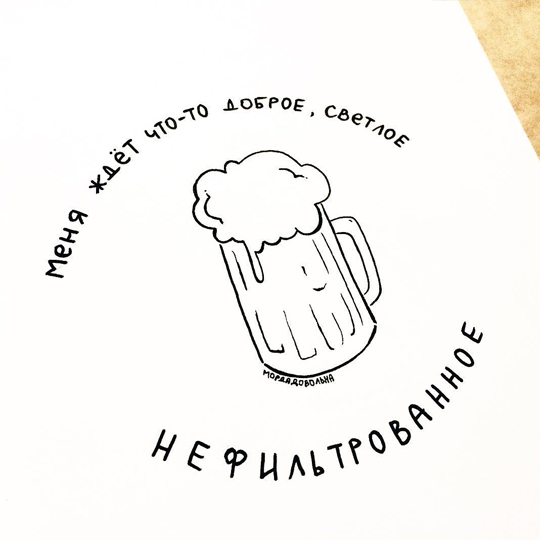 Меня ждёт что-то доброе, светлое
МОРДАДОВОЛЬНА
НЕФИЛЬТРОВАННОЕ